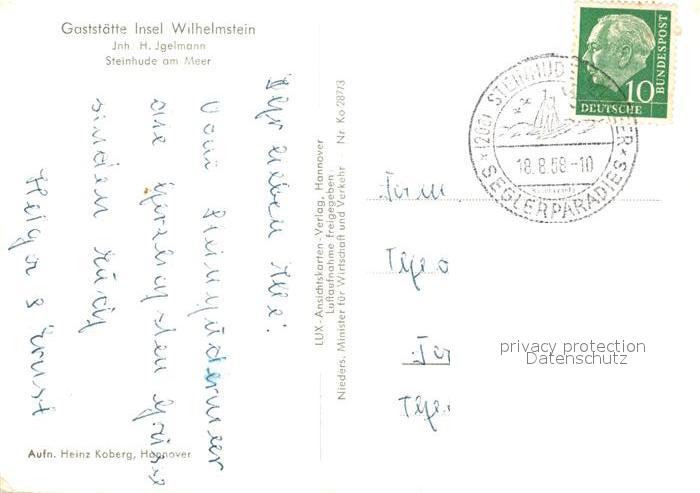 Gaststätte Insel Wilhelmstein
Jnh. H. Jgelmann
Steinhude am Meer
Ihr lieben Alle!
Vom Steinhudermeer
die herzlichsten Grüsse
senden Euch
Helga & Ernst
Aufn. Heinz Koberg, Hannover
LUX-Ansichtskarten-Verlag, Hannover
Luftaufnahme freigegeben:
Nieders. Minister für Wirtschaft und Verkehr Nr Ko 287/3
10
DEUTSCHE
BUNDESPOST
(20a) STEINHUD
ER
18.8.58.-10
SEGLERPARADIES
privacy protection
Datenschutz